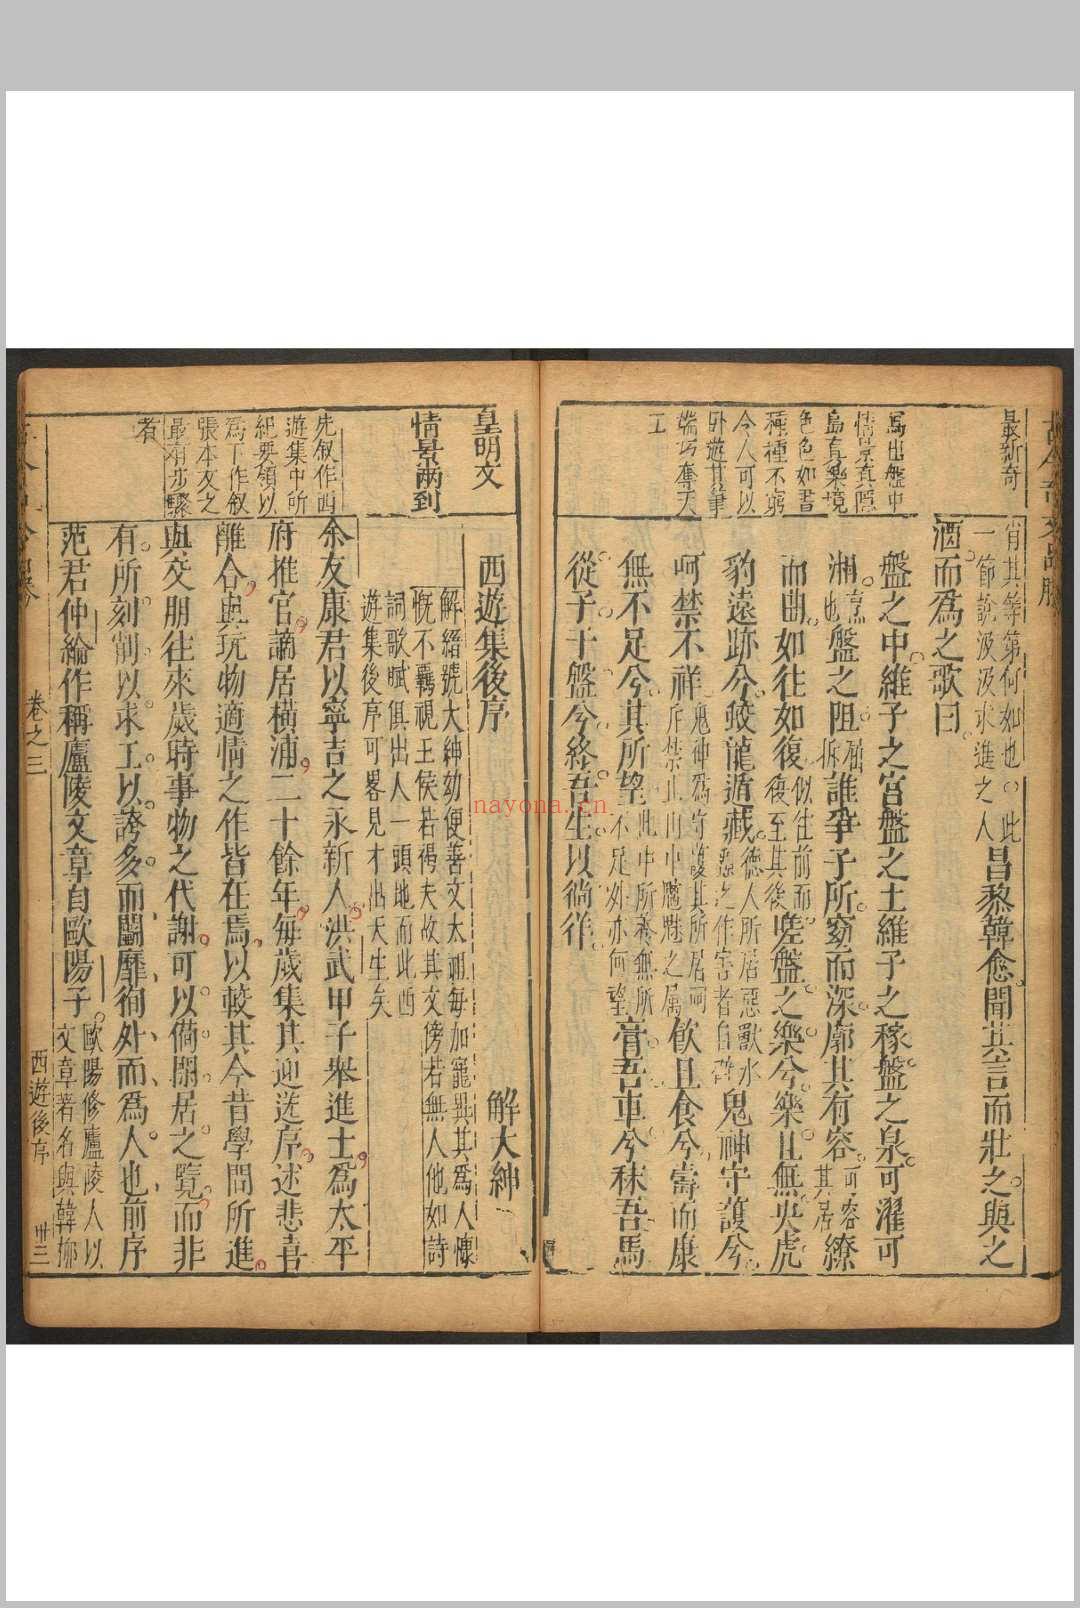 最新奇
肖其等第何如也。此
一節說汲汲求進之人
昌黎韓愈聞其言而壯之與之
酒而爲之歌曰
寫出盤中
情景真隱
島真樂境
色色如畫
種種不窮
今人可以
卧遊其筆
端巧奪天
工
盤之中維子之宮盤之土維子之稼盤之泉可濯可
湘烹也盤之阻誰爭子所窈而深廓其有容可容其居繚
而曲如往如復似往前而復至其後嗟盤之樂兮樂且無央虎
豹遠跡兮蛟龍遁藏德人所居惡獸水惡之作害者自避鬼神守護兮
呵禁不祥鬼神爲守護其所居呵斥禁止山中魑魅之屬飲且食兮壽而康
無不足兮其所望此中所養無所不足外亦何望膏吾車兮秣吾馬
從子于盤兮終吾生以徜徉
皇明文
情景兩到
西遊集後序
解大紳
解縉號大紳幼便善文太祖每加寵異其爲人慷
慨不羈視王侯若褐夫故其文傍若無人他如詩
詞歌賦俱出人一頭地而此西
遊集後序可畧見才出天生矣
先叙作西
遊集中所
紀要領以
爲下作叙
張本文之
最有步驟
者
余友康君以寧吉之永新人洪武甲子舉進士爲太平
府推官謫居橫浦二十餘年每歲集其迎送序述悲喜
離合與玩物適情之作皆在焉以較其今昔學問所進
與交朋往來歲時事物之代謝可以備閒居之覽而非
有所刻削以求工以誇多而鬬靡徇外而爲人也前序
范君仲綸作稱廬陵文章自歐陽子歐陽修廬陵人以文章著名與韓栁
卷之三
西遊後序
卅三
nayona.cn